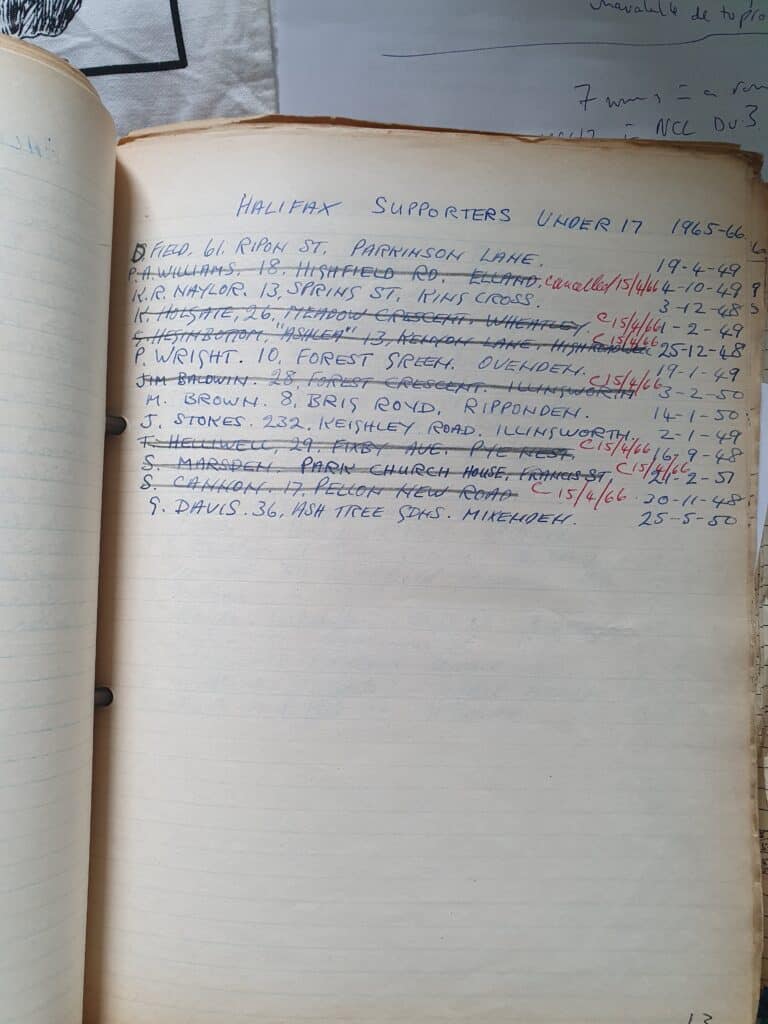 de
7 = a
= NCL DV 3.
HALIFAX SUPPORTERS UNDER 17 1965-66.
D. FIELD. 61. RIPON ST. PARKINSON LANE. 19-4-49
P.A. WILLIAMS. 18. HIGHFIELD RD. ELLAND. cancelled 15/4/66 4-10-49
K.R. NAYLOR. 13, SPRING ST. KING CROSS. 3-12-48
K. HOLGATE, 26, MEADOW CRESCENT. WHEATLEY. C 15/4/66 1-2-49
HESINBOTTOM, "ASHLEA" 13, KENYON LANE, C 15/4/66 25-12-48
P. WRIGHT. 10, FOREST GREEN. OVENDEN. 19-1-49
JIM BALDWIN. 28, FOREST CRESCENT. ILLINGWORTH C 15/4/66 3-2-50
M. BROWN. 8, BRIG ROYD, RIPPONDEN. 14-1-50
J. STOKES. 232, KEIGHLEY ROAD. ILLINGWORTH. 2-1-49
T. HELLIWELL, 29, FIXBY AVE. PYE NEST. C 15/4/66 16-9-48
S. MARSDEN. PARK CHURCH HOUSE, FRANCIS ST C 15/4/66 21-2-51
S. CANNON. 17, PELLON NEW ROAD C 15/4/66. 30-11-48
G. DAVIS. 36, ASH TREE GDNS. MIXENDEN. 25-5-50
13